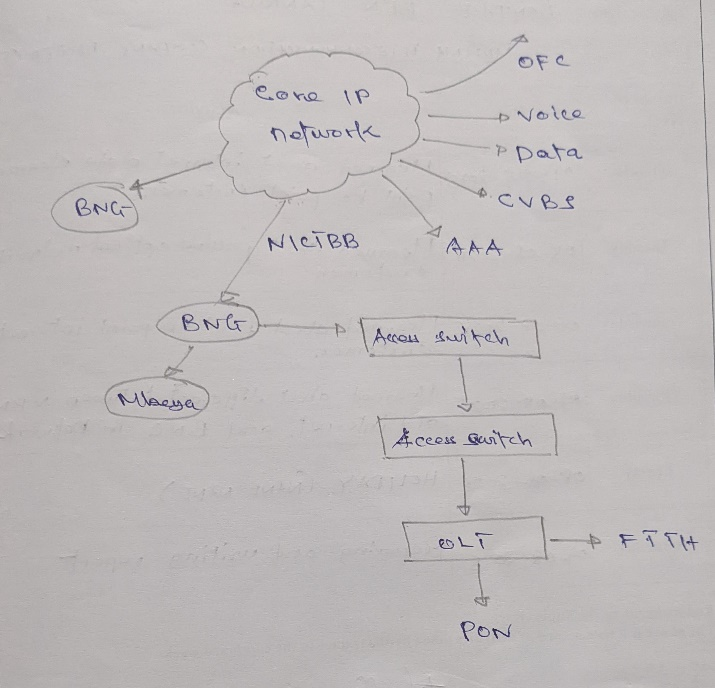 OFC
Core IP
network
Voice
Data
CVBS
BNG
NICTBB
AAA
BNG
Access switch
Mbeya
Access switch
OLT
FTTH
PON